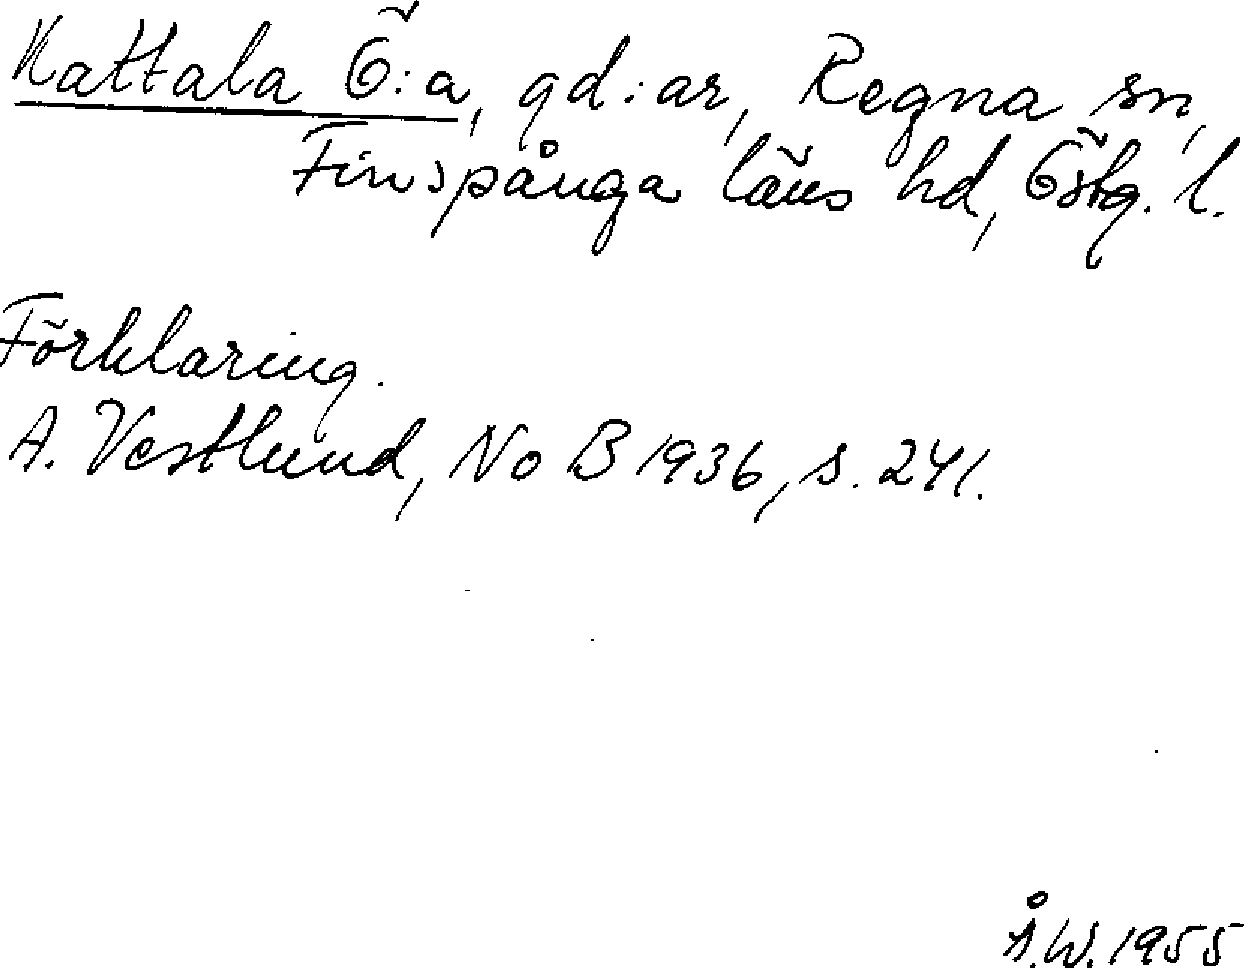 Kattala Ö:a, gd:ar, Regna sn,
Finspånga läns hd, Östg. l.
Förklaring.
A. Vestlund, NoB 1936, s. 241.
Å.W. 1955